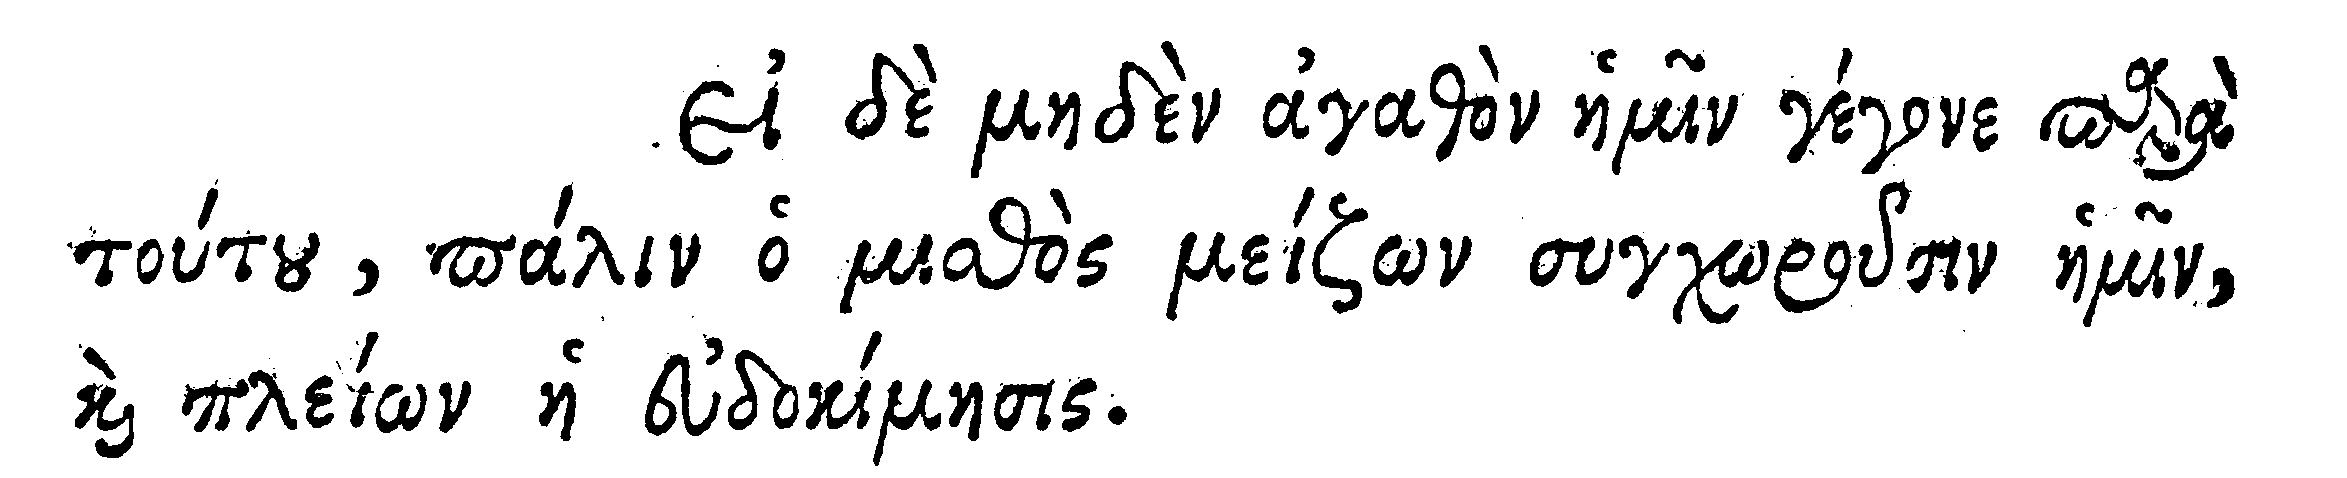 Εἰ δὲ μηδὲν ἀγαθὸν ἡμῖν γέγονε παρὰ
τούτου, πάλιν ὁ μισθὸς μείζων συγχωροῦσιν ἡμῖν,
καὶ πλείων ἡ εὐδοκίμησις.